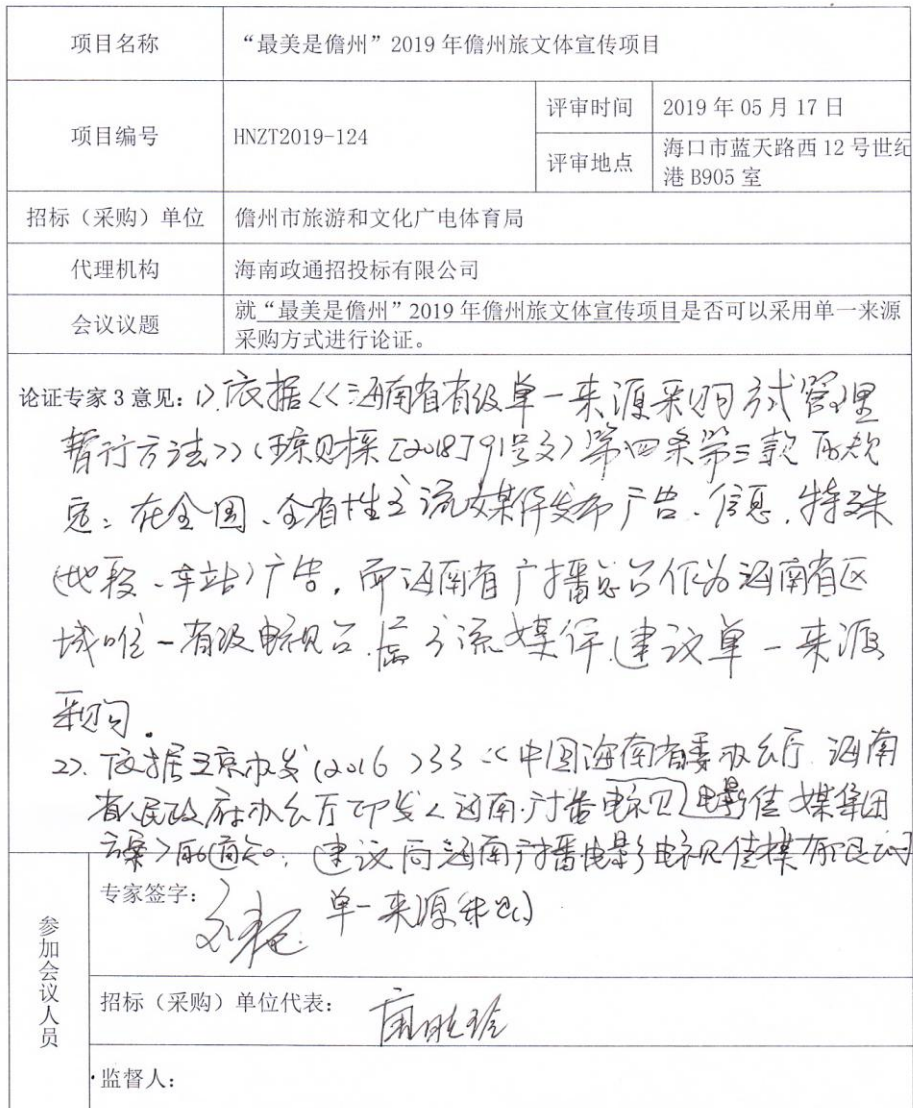 项目名称 “最美是儋州”2019年儋州旅文体宣传项目
项目编号 HNZT2019-124
评审时间 2019年05月17日
评审地点 海口市蓝天路西12号世纪
港B905室
招标（采购）单位 儋州市旅游和文化广电体育局
代理机构 海南政通招投标有限公司
会议议题 就“最美是儋州”2019年儋州旅文体宣传项目是否可以采用单一来源
采购方式进行论证。
论证专家3意见：1).依据<<海南省省级单一来源采购方式管理
暂行方法>>(琼财采[2018]791号文)第四条第三款所规
定：在全国、全省性主流媒体发布广告、信息，特殊
(地段、车站)广告，而海南省广播总台作为海南省区
域唯一省级电视台，属主流媒体，建议单一来源
采购.
2).依据琼办发(2016)33<<中国海南省委办公厅 海南
省人民政府办公厅印发<海南广播电视电影传媒集团
方案>的通知。建议向海南广播电影电视传媒有限公司
单一来源采购
参加会议人员
专家签字：
招标（采购）单位代表：
监督人：